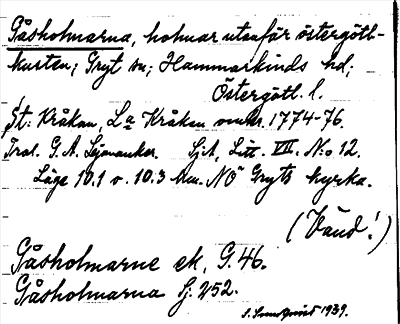 Gåsholmarna, holmar utanför östergötl-
kusten; Gryt sn; Hammarkinds hd;
Östergötl. l.
St: Kråkan, La Kråkan omkr. 1774-76.
Trol. G. A. Sjö. Litt. VII. No 12.
Läge 10.1 o. 10.3 km. NÖ Gryts kyrka.
(Vänd!)
Gåsholmarne ek, G. 46.
Gåsholmarna Sj. 252.
1939.